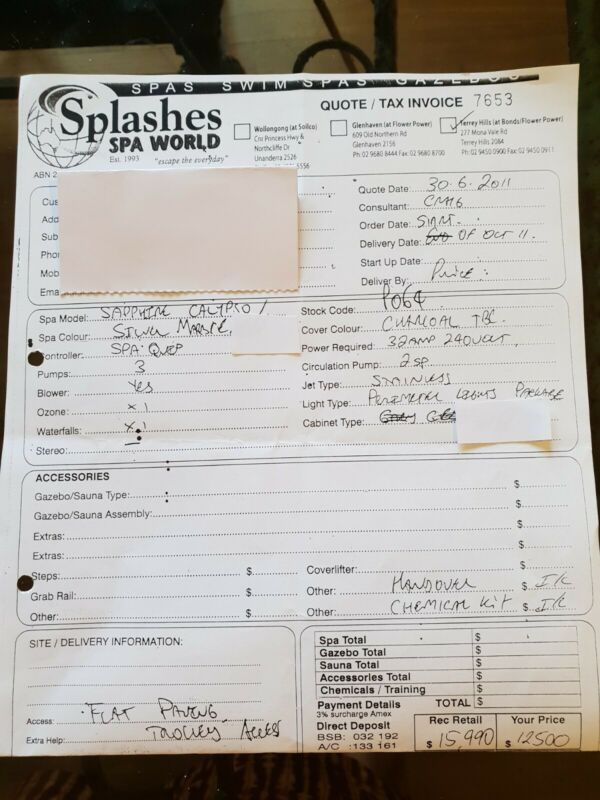 SPAS SWIM SPAS GAZEBOS
Splashes
SPA WORLD
Est. 1993 "escape the everyday"
ABN 2
QUOTE / TAX INVOICE 7653
Wollongong (at Soilco)
Cnr Princess Hwy &
Northcliffe Dr
Unanderra 2526
6556
Glenhaven (at Flower Power)
609 Old Northern Rd
Glenhaven 2156
Ph: 02 9680 8444 Fax: 02 9680 8700
Terrey Hills (at Bonds/Flower Power)
277 Mona Vale Rd
Terrey Hills 2084
Ph: 02 9450 0900 Fax: 02 9450 0911
Cus
Add
Sub
Pho
Mob
Ema
Quote Date: 30.6.2011
Consultant: CRAIG
Order Date: START.
Delivery Date: OF OCT 11.
Start Up Date:
Deliver By: Price:
Spa Model: SAPPHIRE CALYPSO /
Spa Colour: SILVER MARBLE
Controller: SPA QUIP
Pumps: 3
Blower: Yes
Ozone: x 1
Waterfalls: x 1
Stereo: —
Stock Code: P064
Cover Colour: CHARCOAL TBC
Power Required: 32 AMP 240 VOLT,
Circulation Pump: 2 SP
Jet Type: STAINLESS
Light Type: PERIMETER LIGHTS PACKAGE
Cabinet Type:
ACCESSORIES
Gazebo/Sauna Type: $
Gazebo/Sauna Assembly: $
Extras: $
Extras: $
Steps: $ Coverlifter: $
Grab Rail: $ Other: HANDOVER $ I/C
Other: $ Other: CHEMICAL KIT $ I/C
SITE / DELIVERY INFORMATION:
Access: FLAT PAVING
Extra Help: TROLLEY ACCESS
Spa Total $
Gazebo Total $
Sauna Total $
Accessories Total $
Chemicals / Training $
Payment Details TOTAL $
3% surcharge Amex
Direct Deposit
BSB: 032 192
A/C :133 161
Rec Retail
$ 15,990
Your Price
$ 12500